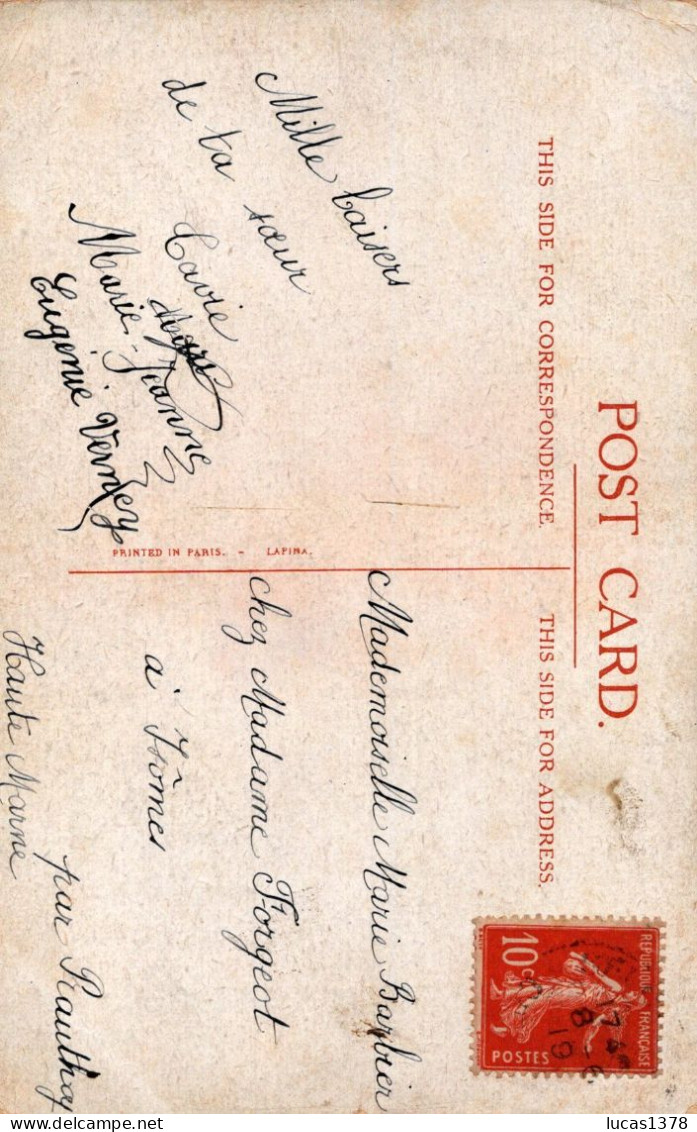 POST CARD.
THIS SIDE FOR CORRESPONDENCE.
THIS SIDE FOR ADDRESS.
Mille baisers
de ta sœur
Marie-Jeanne
Eugénie Verney
PRINTED IN PARIS. - LAPINA.
Mademoiselle Marie Barbier
chez Madame Forgeot
à Isômes
par Prauthoy
Haute Marne
REPUBLIQUE FRANÇAISE
10c
POSTES
17
8-6
19
lucas1378